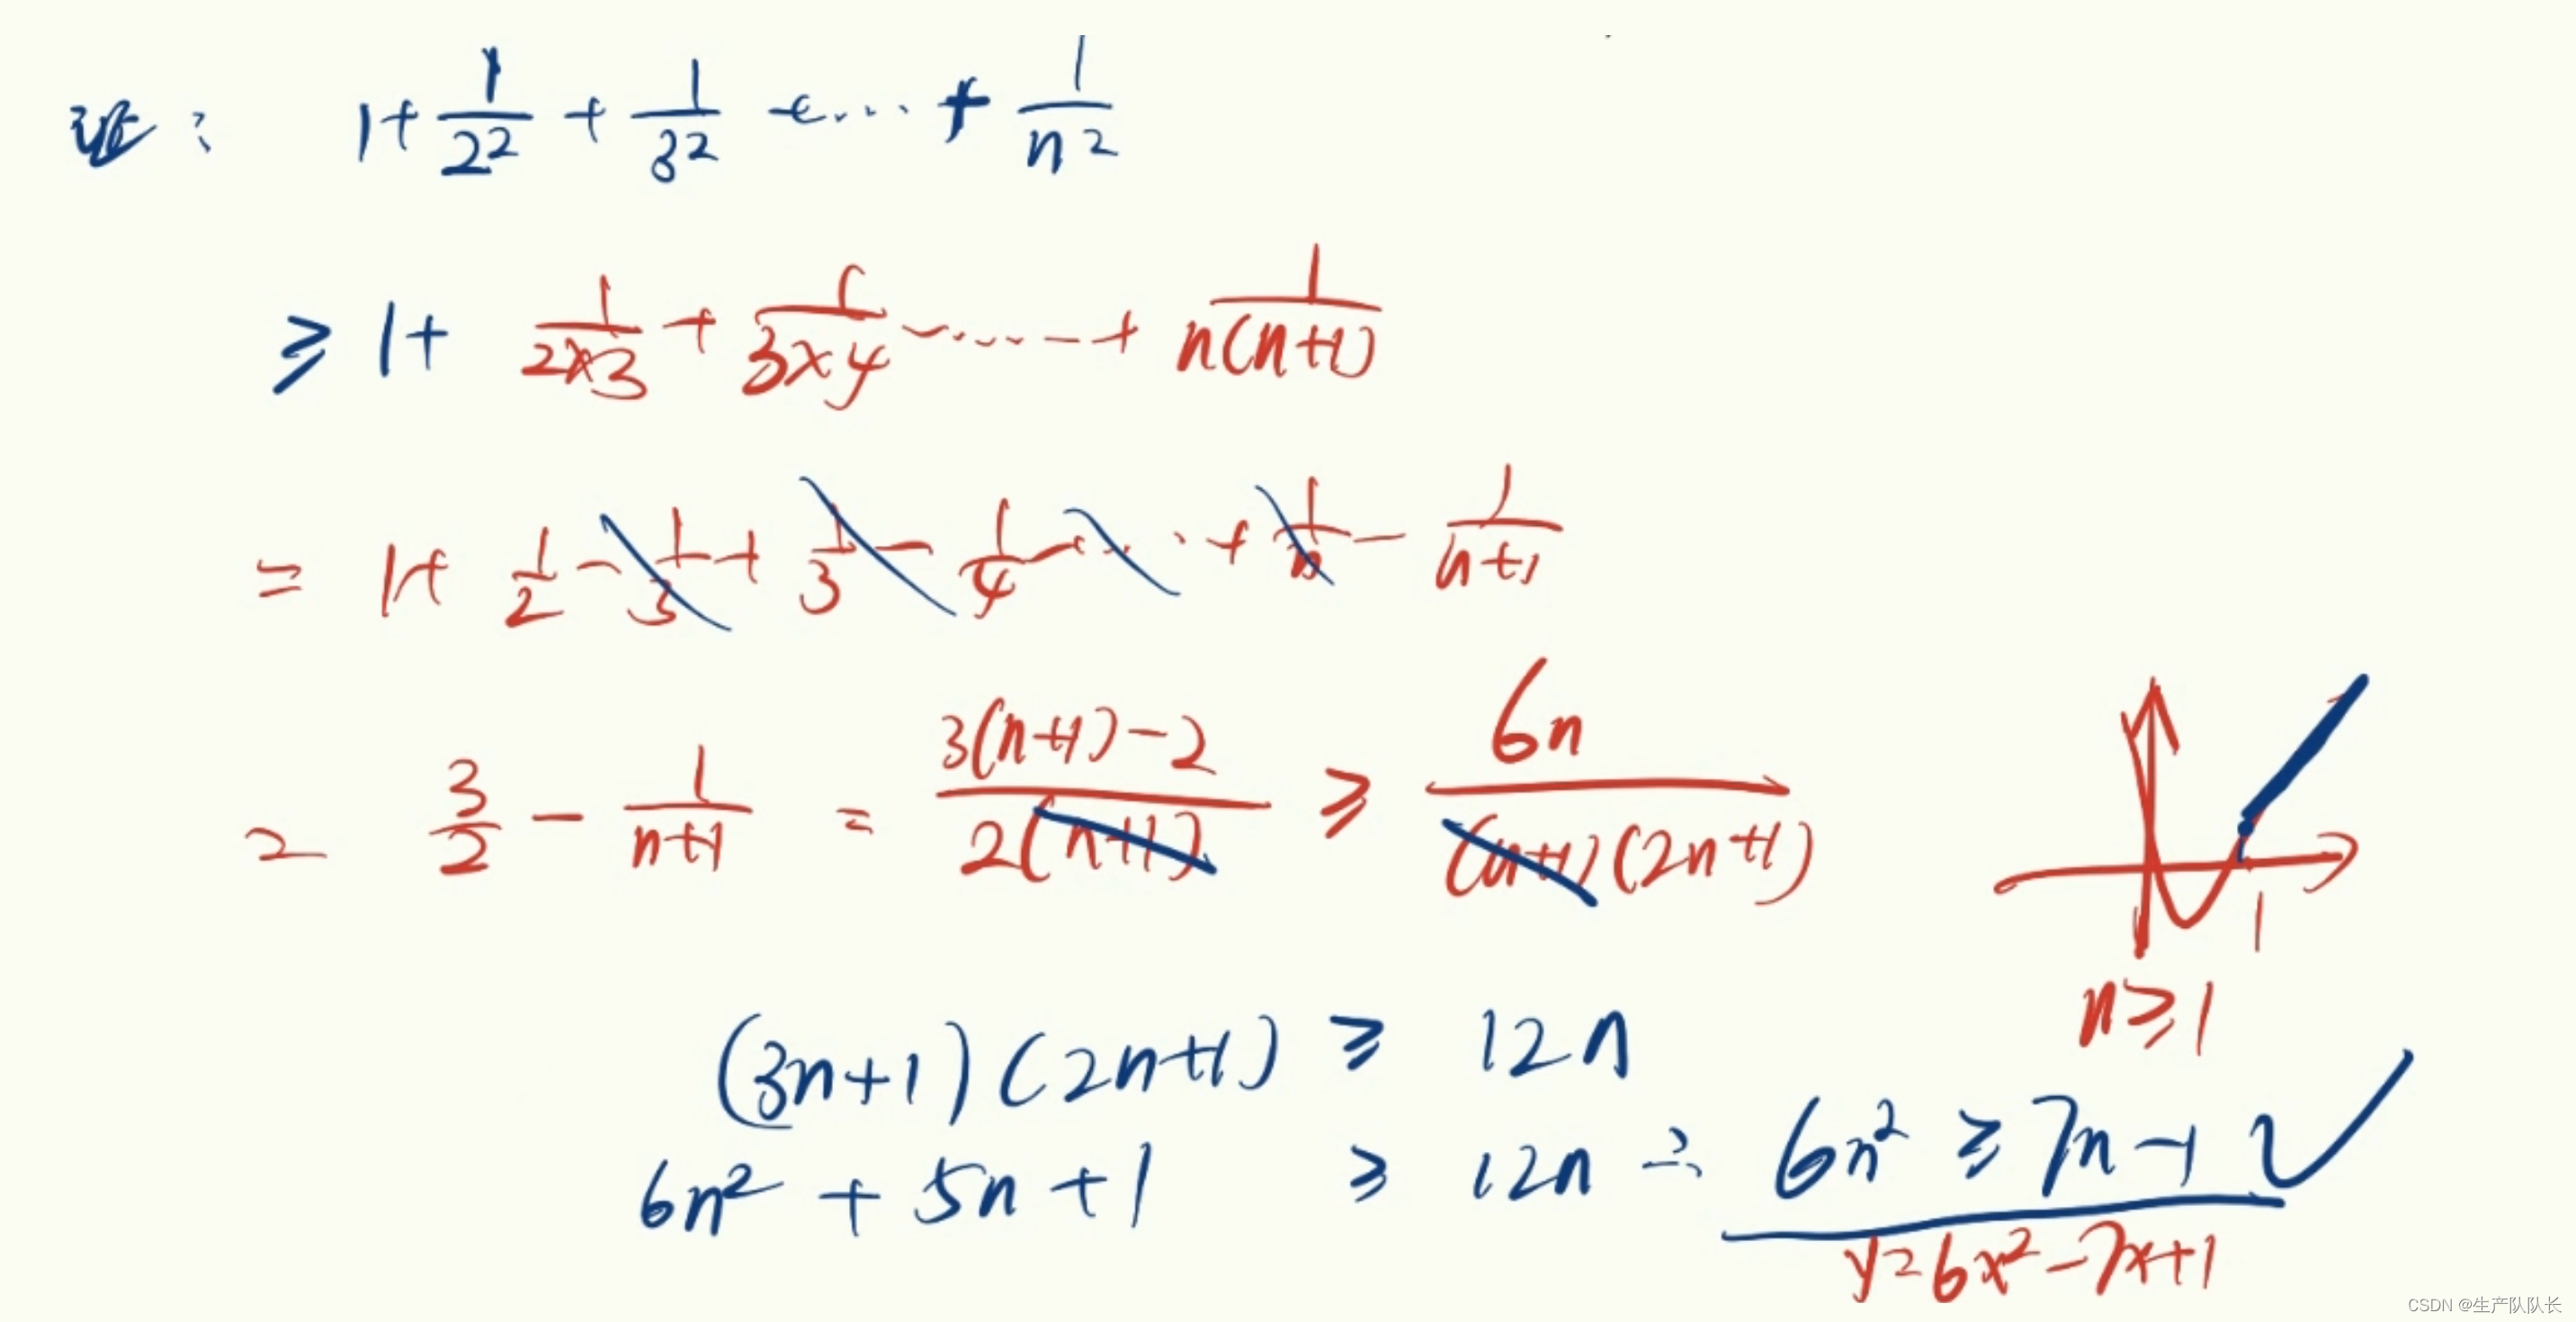 证： 1 + 1/2² + 1/3² + ... + 1/n²
≥ 1 + 1/(2×3) + 1/(3×4) ...... + 1/(n(n+1))
= 1 + 1/2 - 1/3 + 1/3 - 1/4 ... + 1/n - 1/(n+1)
= 3/2 - 1/(n+1) = (3(n+1)-2)/(2(n+1)) ≥ 6n/((n+1)(2n+1))
1
n≥1
(3n+1)(2n+1) ≥ 12n
6n² + 5n + 1 ≥ 12n ∴ 6n² ≥ 7n-1 ✓
y=6x²-7x+1
CSDN @生产队队长